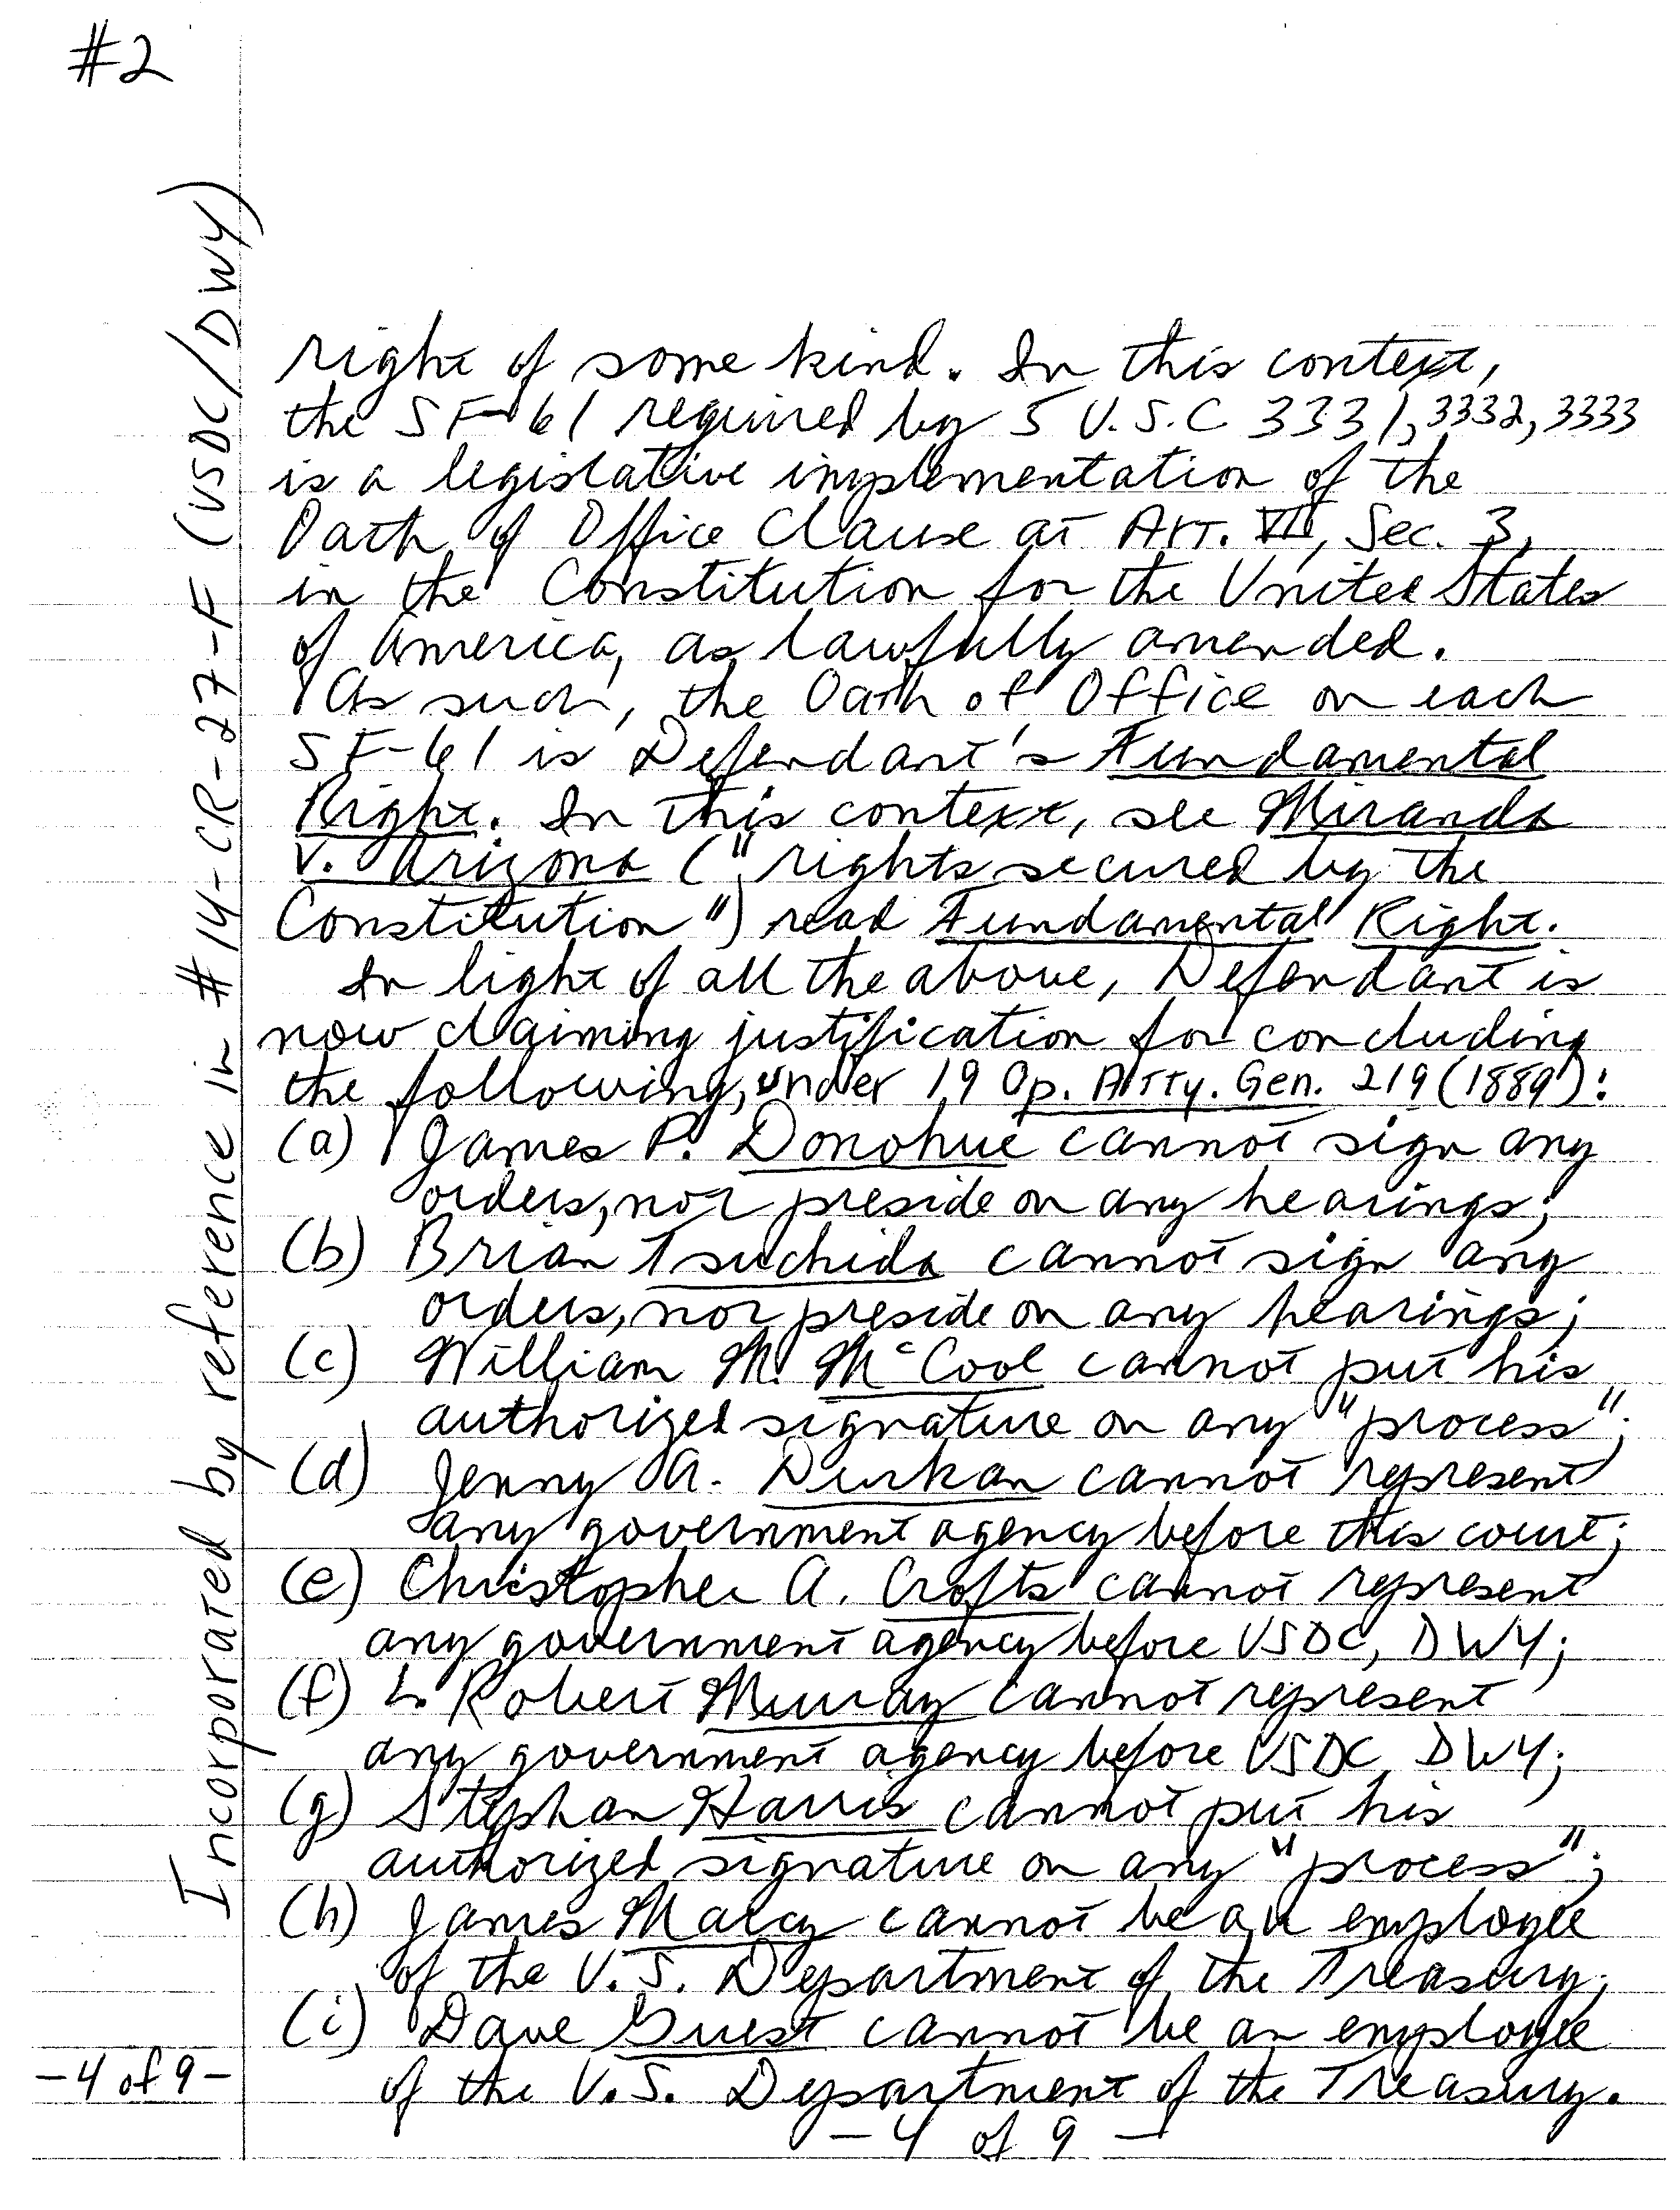 #2
Incorporated by reference in #14-CR-27-F (USDC/DWY)
right of some kind. In this context,
the SF-61 required by 5 U.S.C 3331, 3332, 3333
is a legislative implementation of the
Oath of Office Clause at Art. VI, Sec. 3,
in the Constitution for the United States
of America, as lawfully amended.
As such, the Oath of Office on each
SF-61 is Defendant's Fundamental
Right. In this context, see Miranda
v. Arizona ("rights secured by the
Constitution") read Fundamental Right.
In light of all the above, Defendant is
now claiming justification for concluding
the following, under 19 Op. Atty. Gen. 219 (1889):
(a) James P. Donohue cannot sign any
orders, nor preside on any hearings;
(b) Brian Tsuchida cannot sign any
orders, nor preside on any hearings;
(c) William M. McCool cannot put his
authorized signature on any "process";
(d) Jenny A. Durkan cannot represent
any government agency before this court;
(e) Christopher A. Crofts cannot represent
any government agency before USDC, DWY;
(f) L. Robert Murray cannot represent
any government agency before USDC, DWY;
(g) Stephan Harris cannot put his
authorized signature on any "process";
(h) James Marcy cannot be an employee
of the U.S. Department of the Treasury;
(i) Dave Guest cannot be an employee
of the U.S. Department of the Treasury.
-4 of 9-
- 4 of 9 -